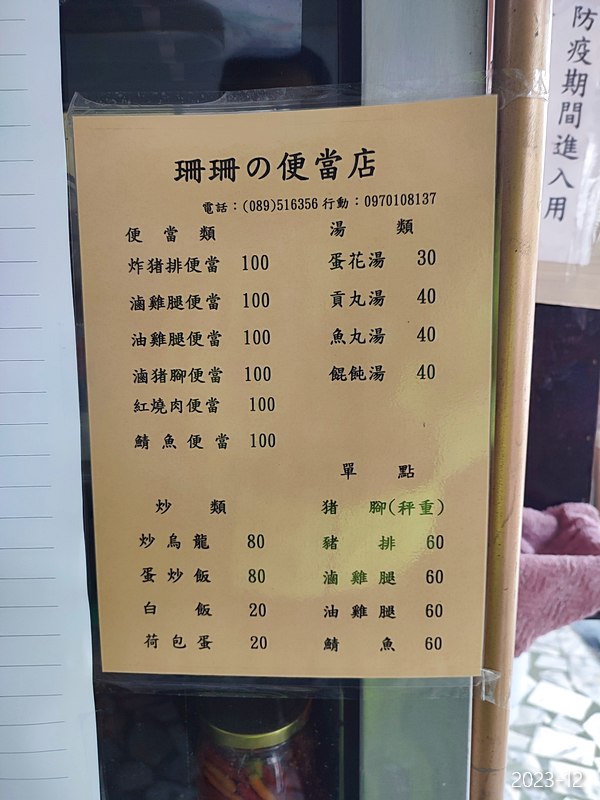 珊珊の便當店
電話：(089)516356 行動：0970108137
便當類
炸猪排便當 100
滷雞腿便當 100
油雞腿便當 100
滷猪腳便當 100
紅燒肉便當 100
鯖魚便當 100
湯類
蛋花湯 30
貢丸湯 40
魚丸湯 40
餛飩湯 40
炒類
炒烏龍 80
蛋炒飯 80
白飯 20
荷包蛋 20
單點
猪腳(秤重)
豬排 60
滷雞腿 60
油雞腿 60
鯖魚 60
防疫期間進入用
2023-12